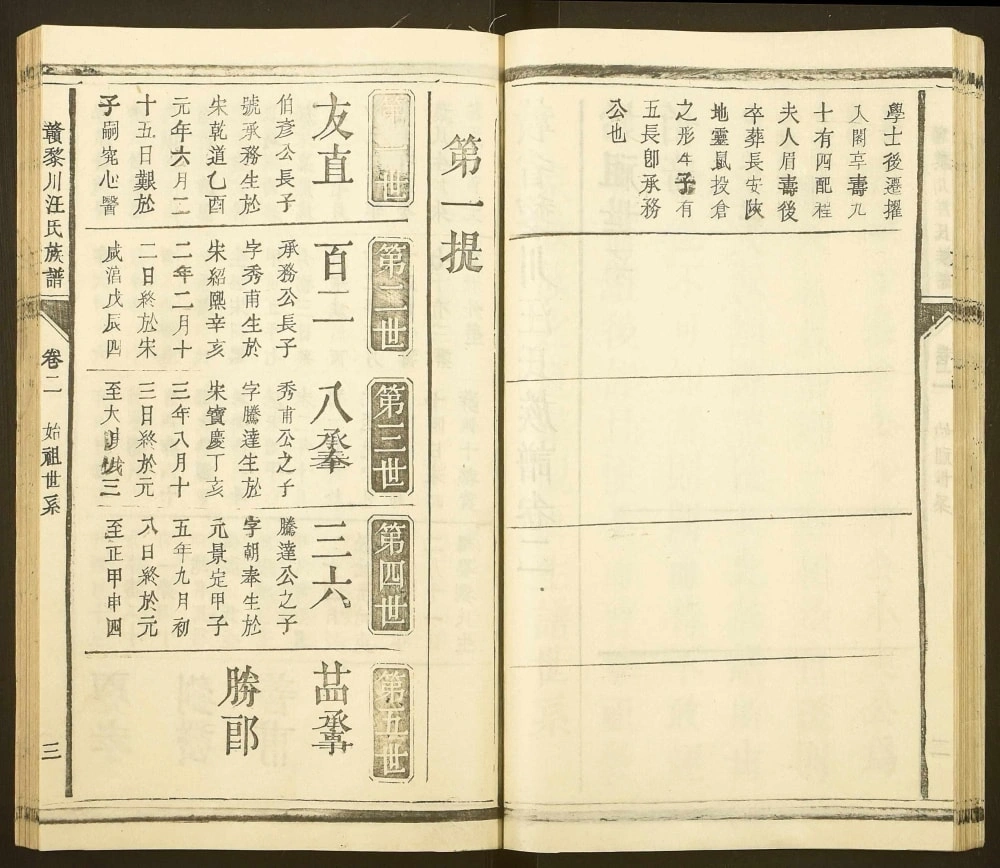 學士後遷擢
入閣享壽九
十有四配程
夫人眉壽後
卒葬長安陝
地靈鼠投倉
之形生子有
五長卽承務
公也
第一提
第一世
友直
伯彥公長子
號承務生於
宋乾道乙酉
元年六月二
十五日歿於
子嗣究心醫
第二世
百二
承務公長子
字秀甫生於
宋紹熙辛亥
二年二月十
二日終於宋
咸淳戊辰四
第三世
八承奉
秀甫公之子
字騰達生於
宋寶慶丁亥
三年八月十
三日終於元
至大三
第四世
三六
騰達公之子
字朝奉生於
元景定甲子
五年九月初
八日終於元
至正甲申四
第五世
承事
勝郎
贛黎川汪氏族譜
卷二 始祖世系
三